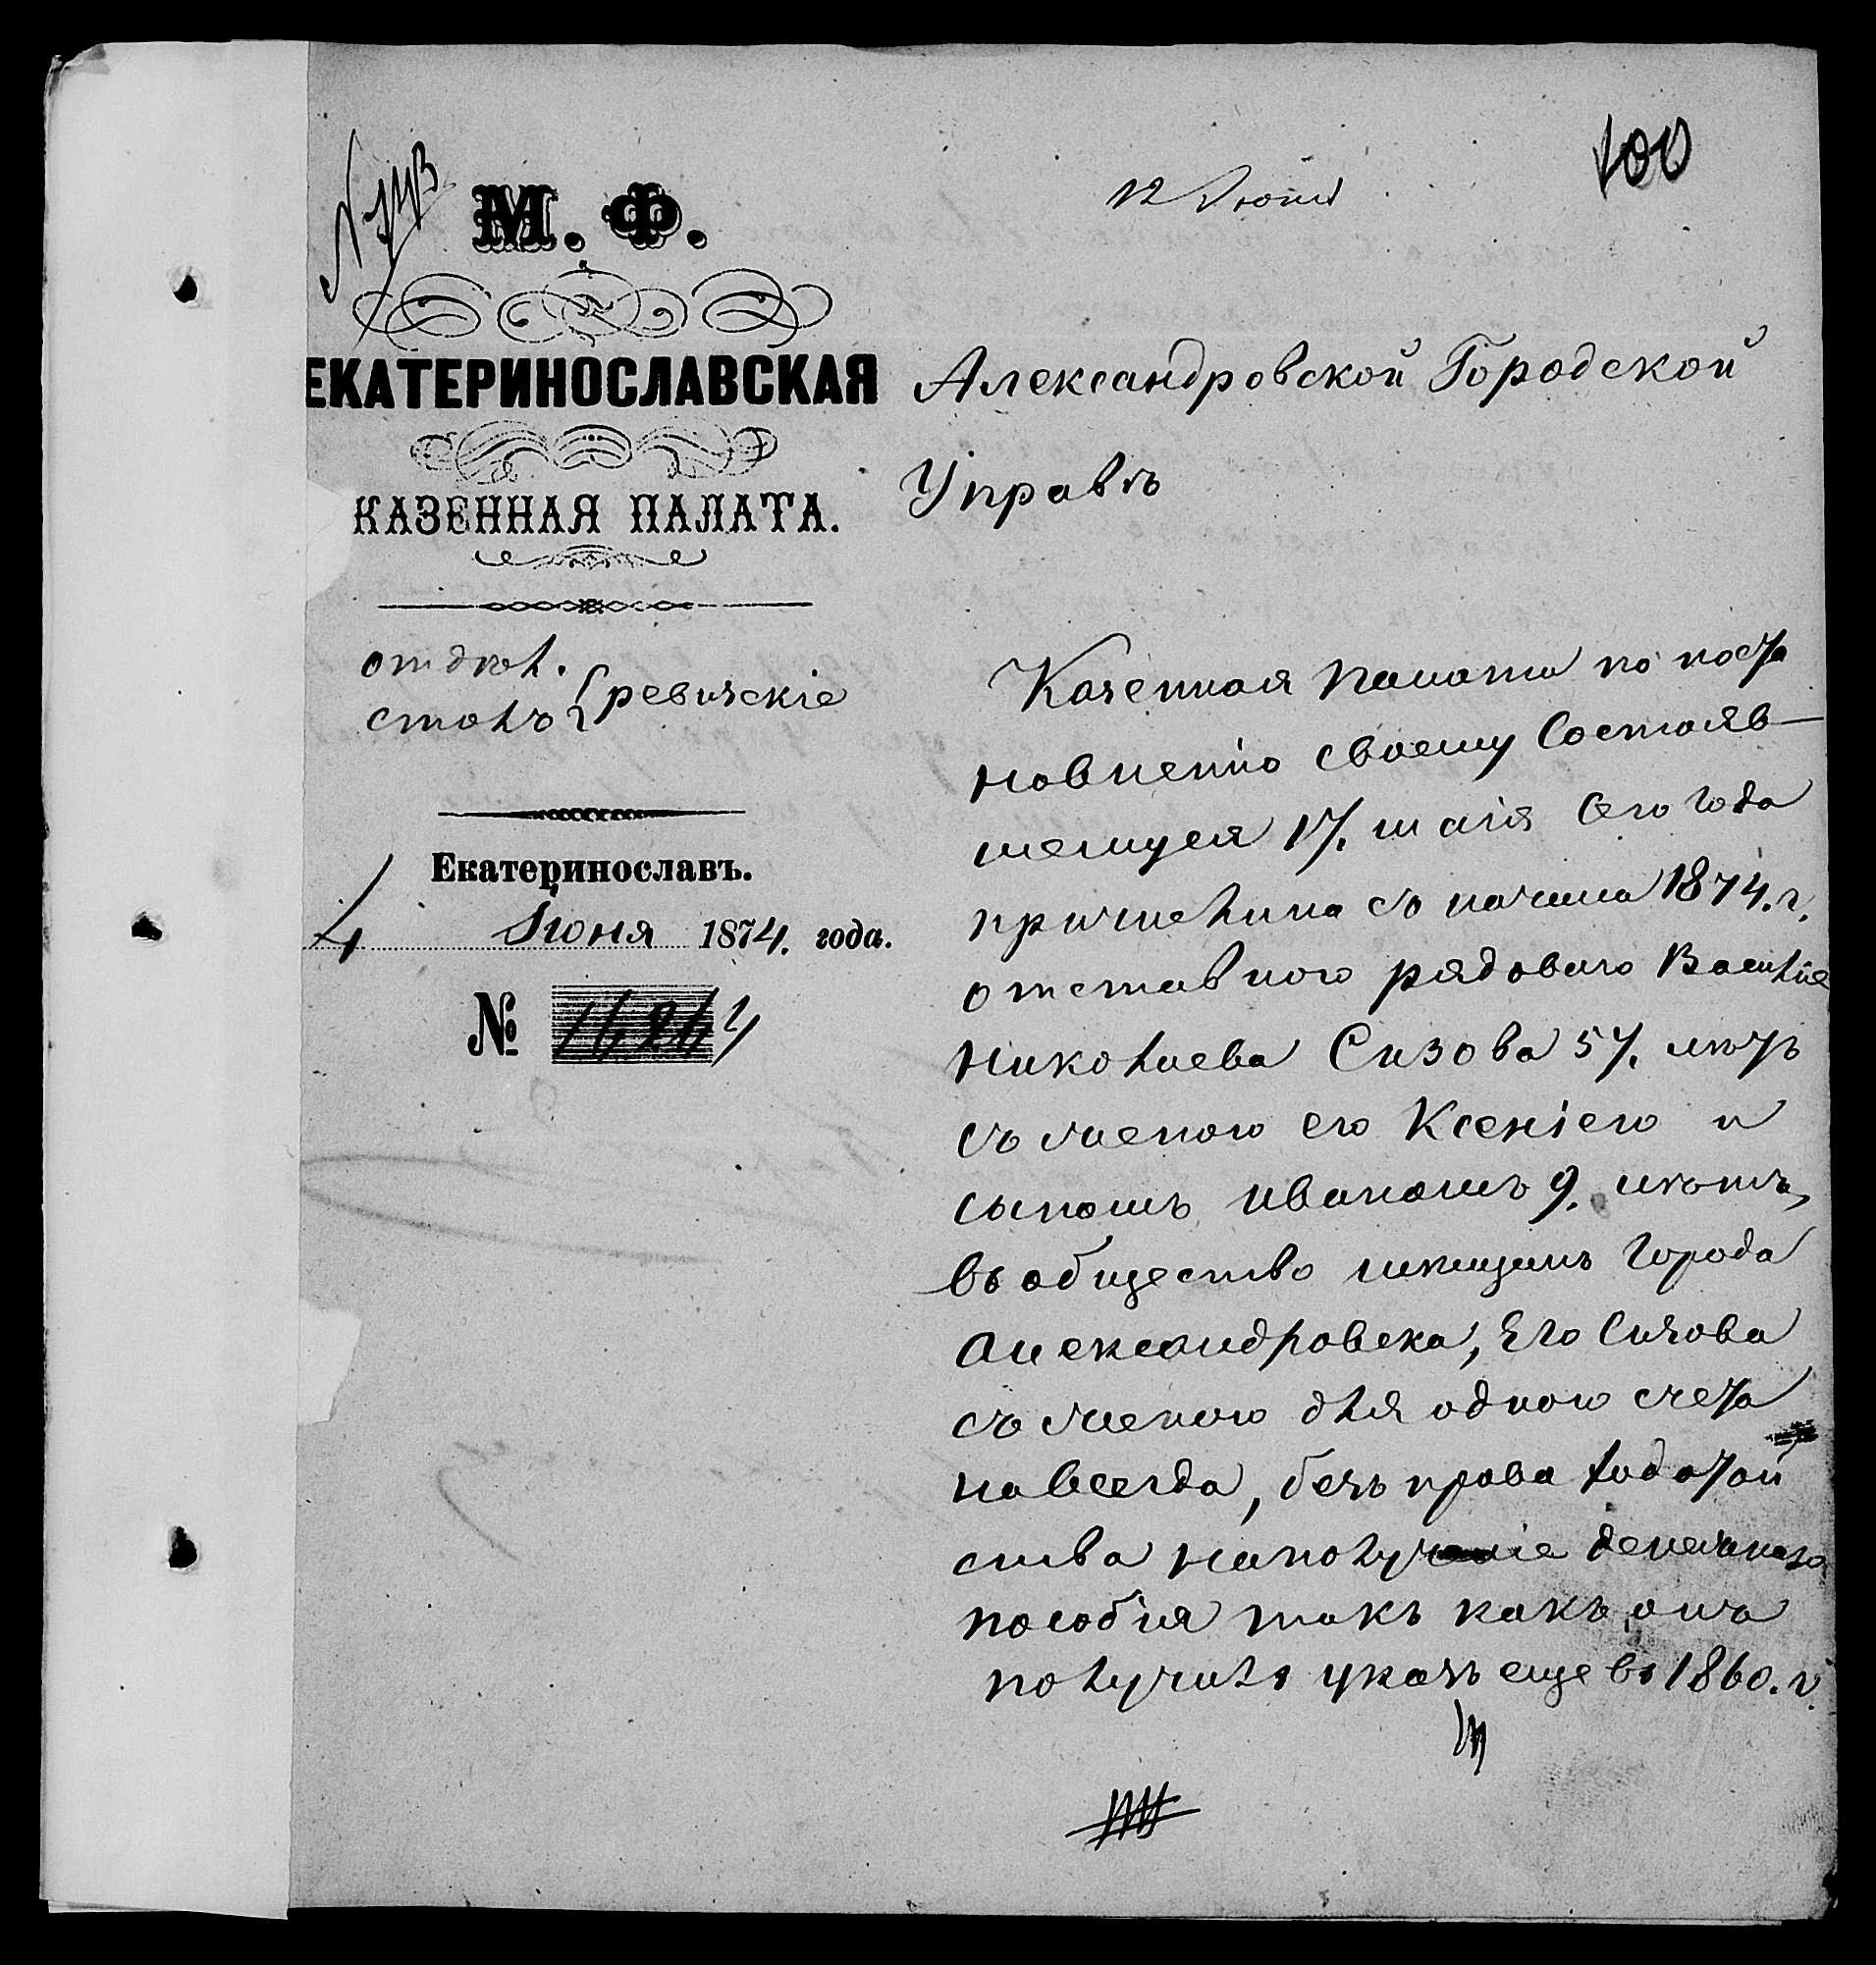 100
12 Июня
М. Ф.
ЕКАТЕРИНОСЛАВСКАЯ
КАЗЕННАЯ ПАЛАТА.
отдѣл.
столъ } ревизскіе
Екатеринославъ.
4 Июня 1874. года.
№ 16264
Александровской Городской
Управѣ
Казенная Палата по поста
новленію своему Состояв-
шемуся 17. мая сего года
причислила съ начала 1874. г.
отставного рядового Василія
Николаева Сизова 57. лѣтъ
съ женою его Ксеніею и
сыномъ Иваномъ 9. лѣтъ,
въ общество мѣщанъ города
Александровска, Его Сизова
съ женою для одного счета
навсегда, безъ права ходатай
ства на полученіе денежнаго
пособія такъ какъ онъ
получилъ указъ еще въ 1860. г.